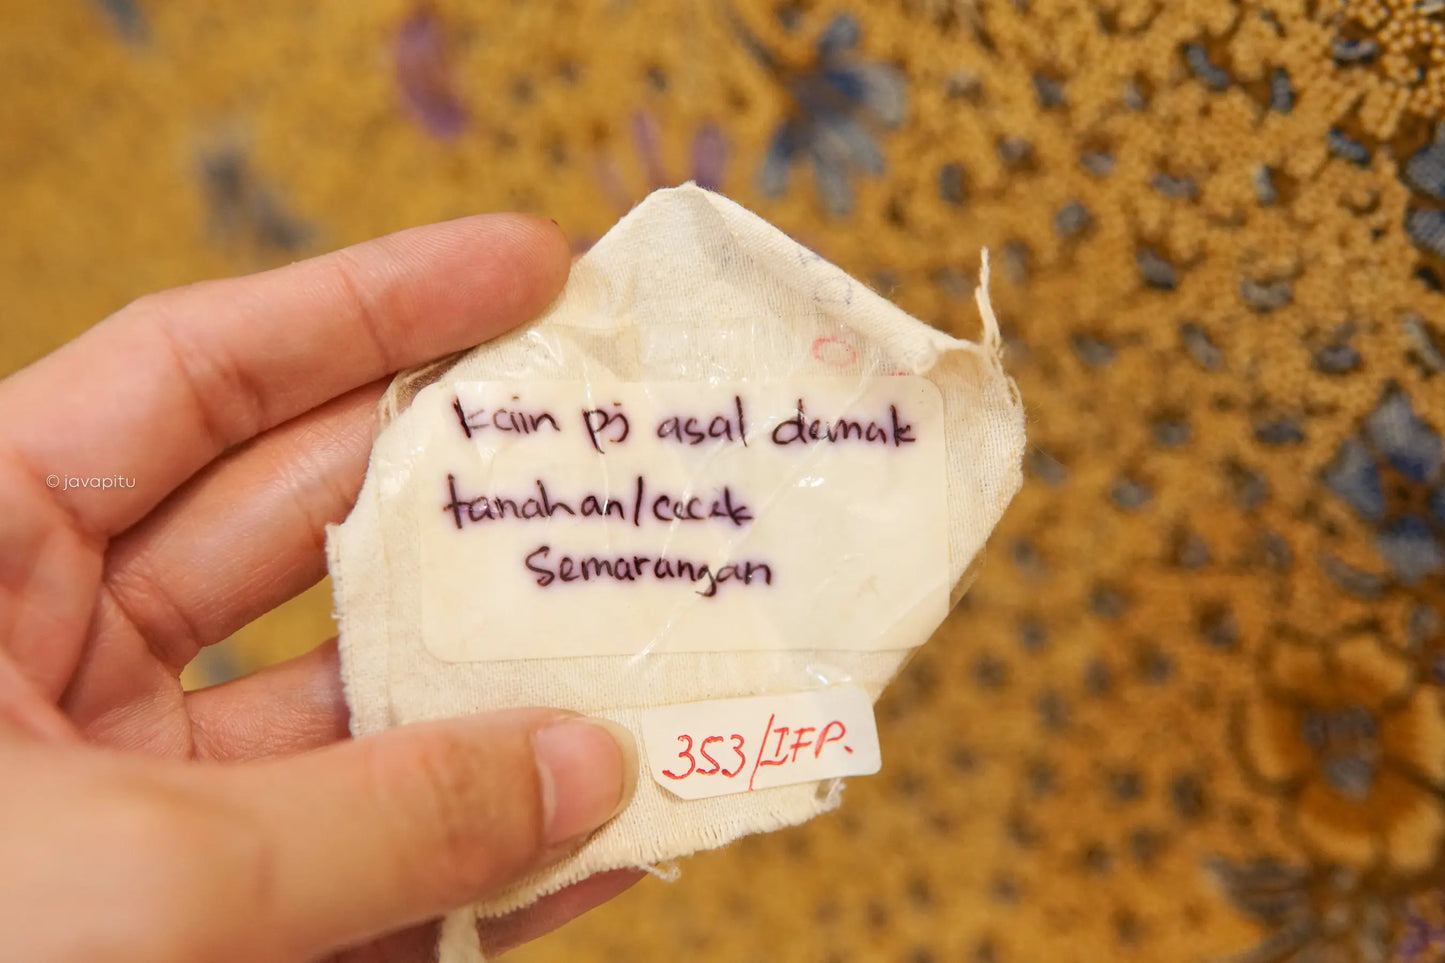 kain pj asal demak
tanahan/cecek
Semarangan
353/IFP.
© javapitu